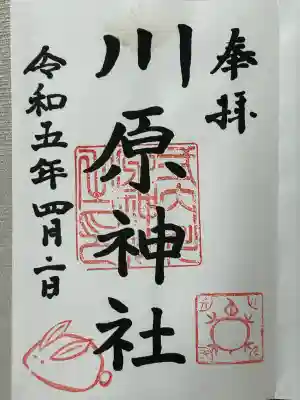 奉拝
川原神社
令和五年四月二日